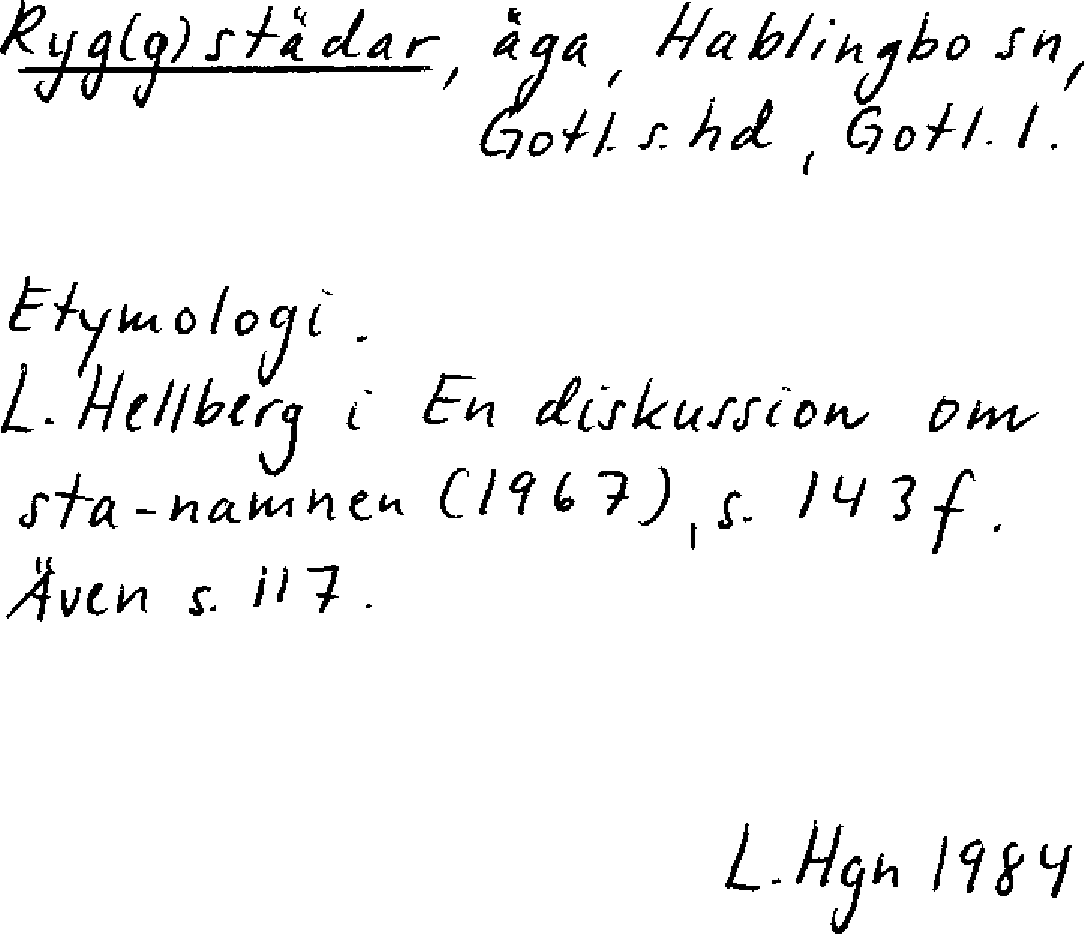 Ryg(g)städar, äga, Hablingbo sn,
Gotl. s. hd, Gotl. l.
Etymologi.
L. Hellberg i En diskussion om
sta-namnen (1967), s. 143 f.
Även s. 117.
L. Hgn 1984